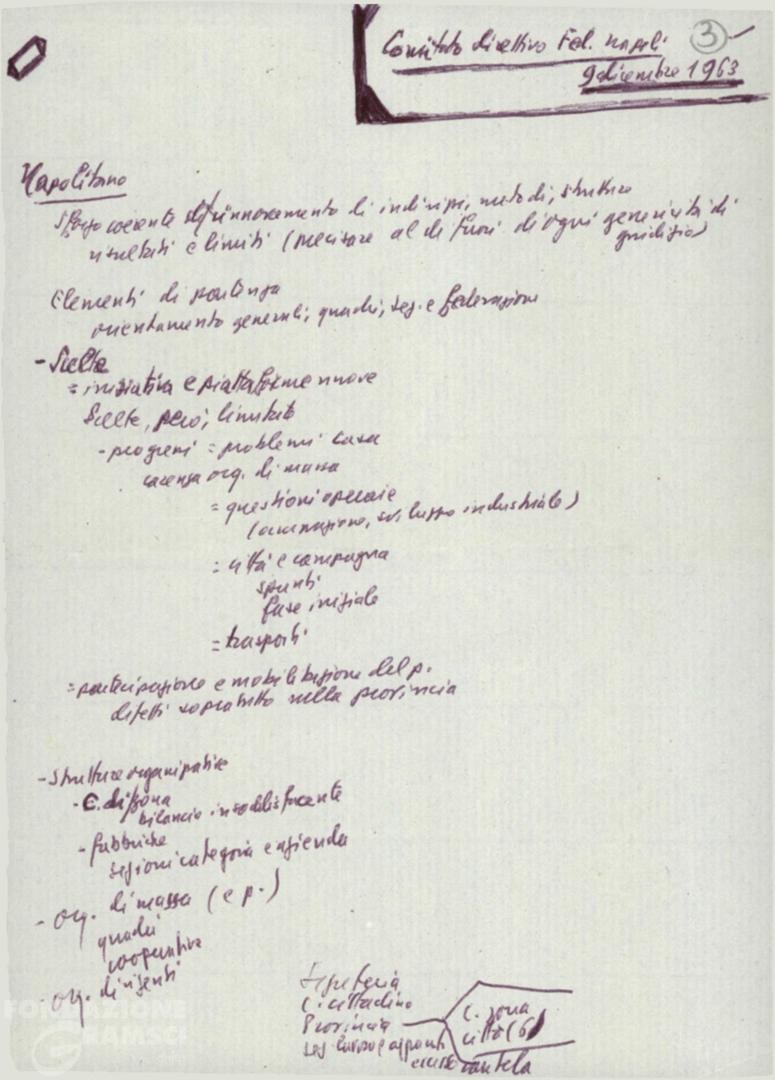 Comitato direttivo Fed. Napoli
3
9 dicembre 1963
Napolitano
Sforzo coerente di rinnovamento di indirizzi, metodi, strutture
risultati e limiti (precisare al di fuori di ogni genericità di
giudizio)
Elementi di partenza
orientamento generali, quadri, sez. e federazione
- Scelte
= iniziativa e piattaforme nuove
Scelte, però, limitate
- progressi = problemi casa
carenza org. di massa
= questioni operaie
(occupazione, sviluppo industriale)
= città e campagna
spunti
fase iniziale
= trasporti
= partecipazione e mobilitazione del p.
difetti sopratutto nella provincia
- Strutture organizzative
- C. di zona
bilancio insoddisfacente
- fabbriche
sezioni categoria e azienda
- org. di massa (e p.)
quadri
cooperative
- org. dirigenti
Segreteria
C. cittadino
Provincia
C. zona
città (6)
sez. lavoro e
FONDAZIONE
GRAMSCI